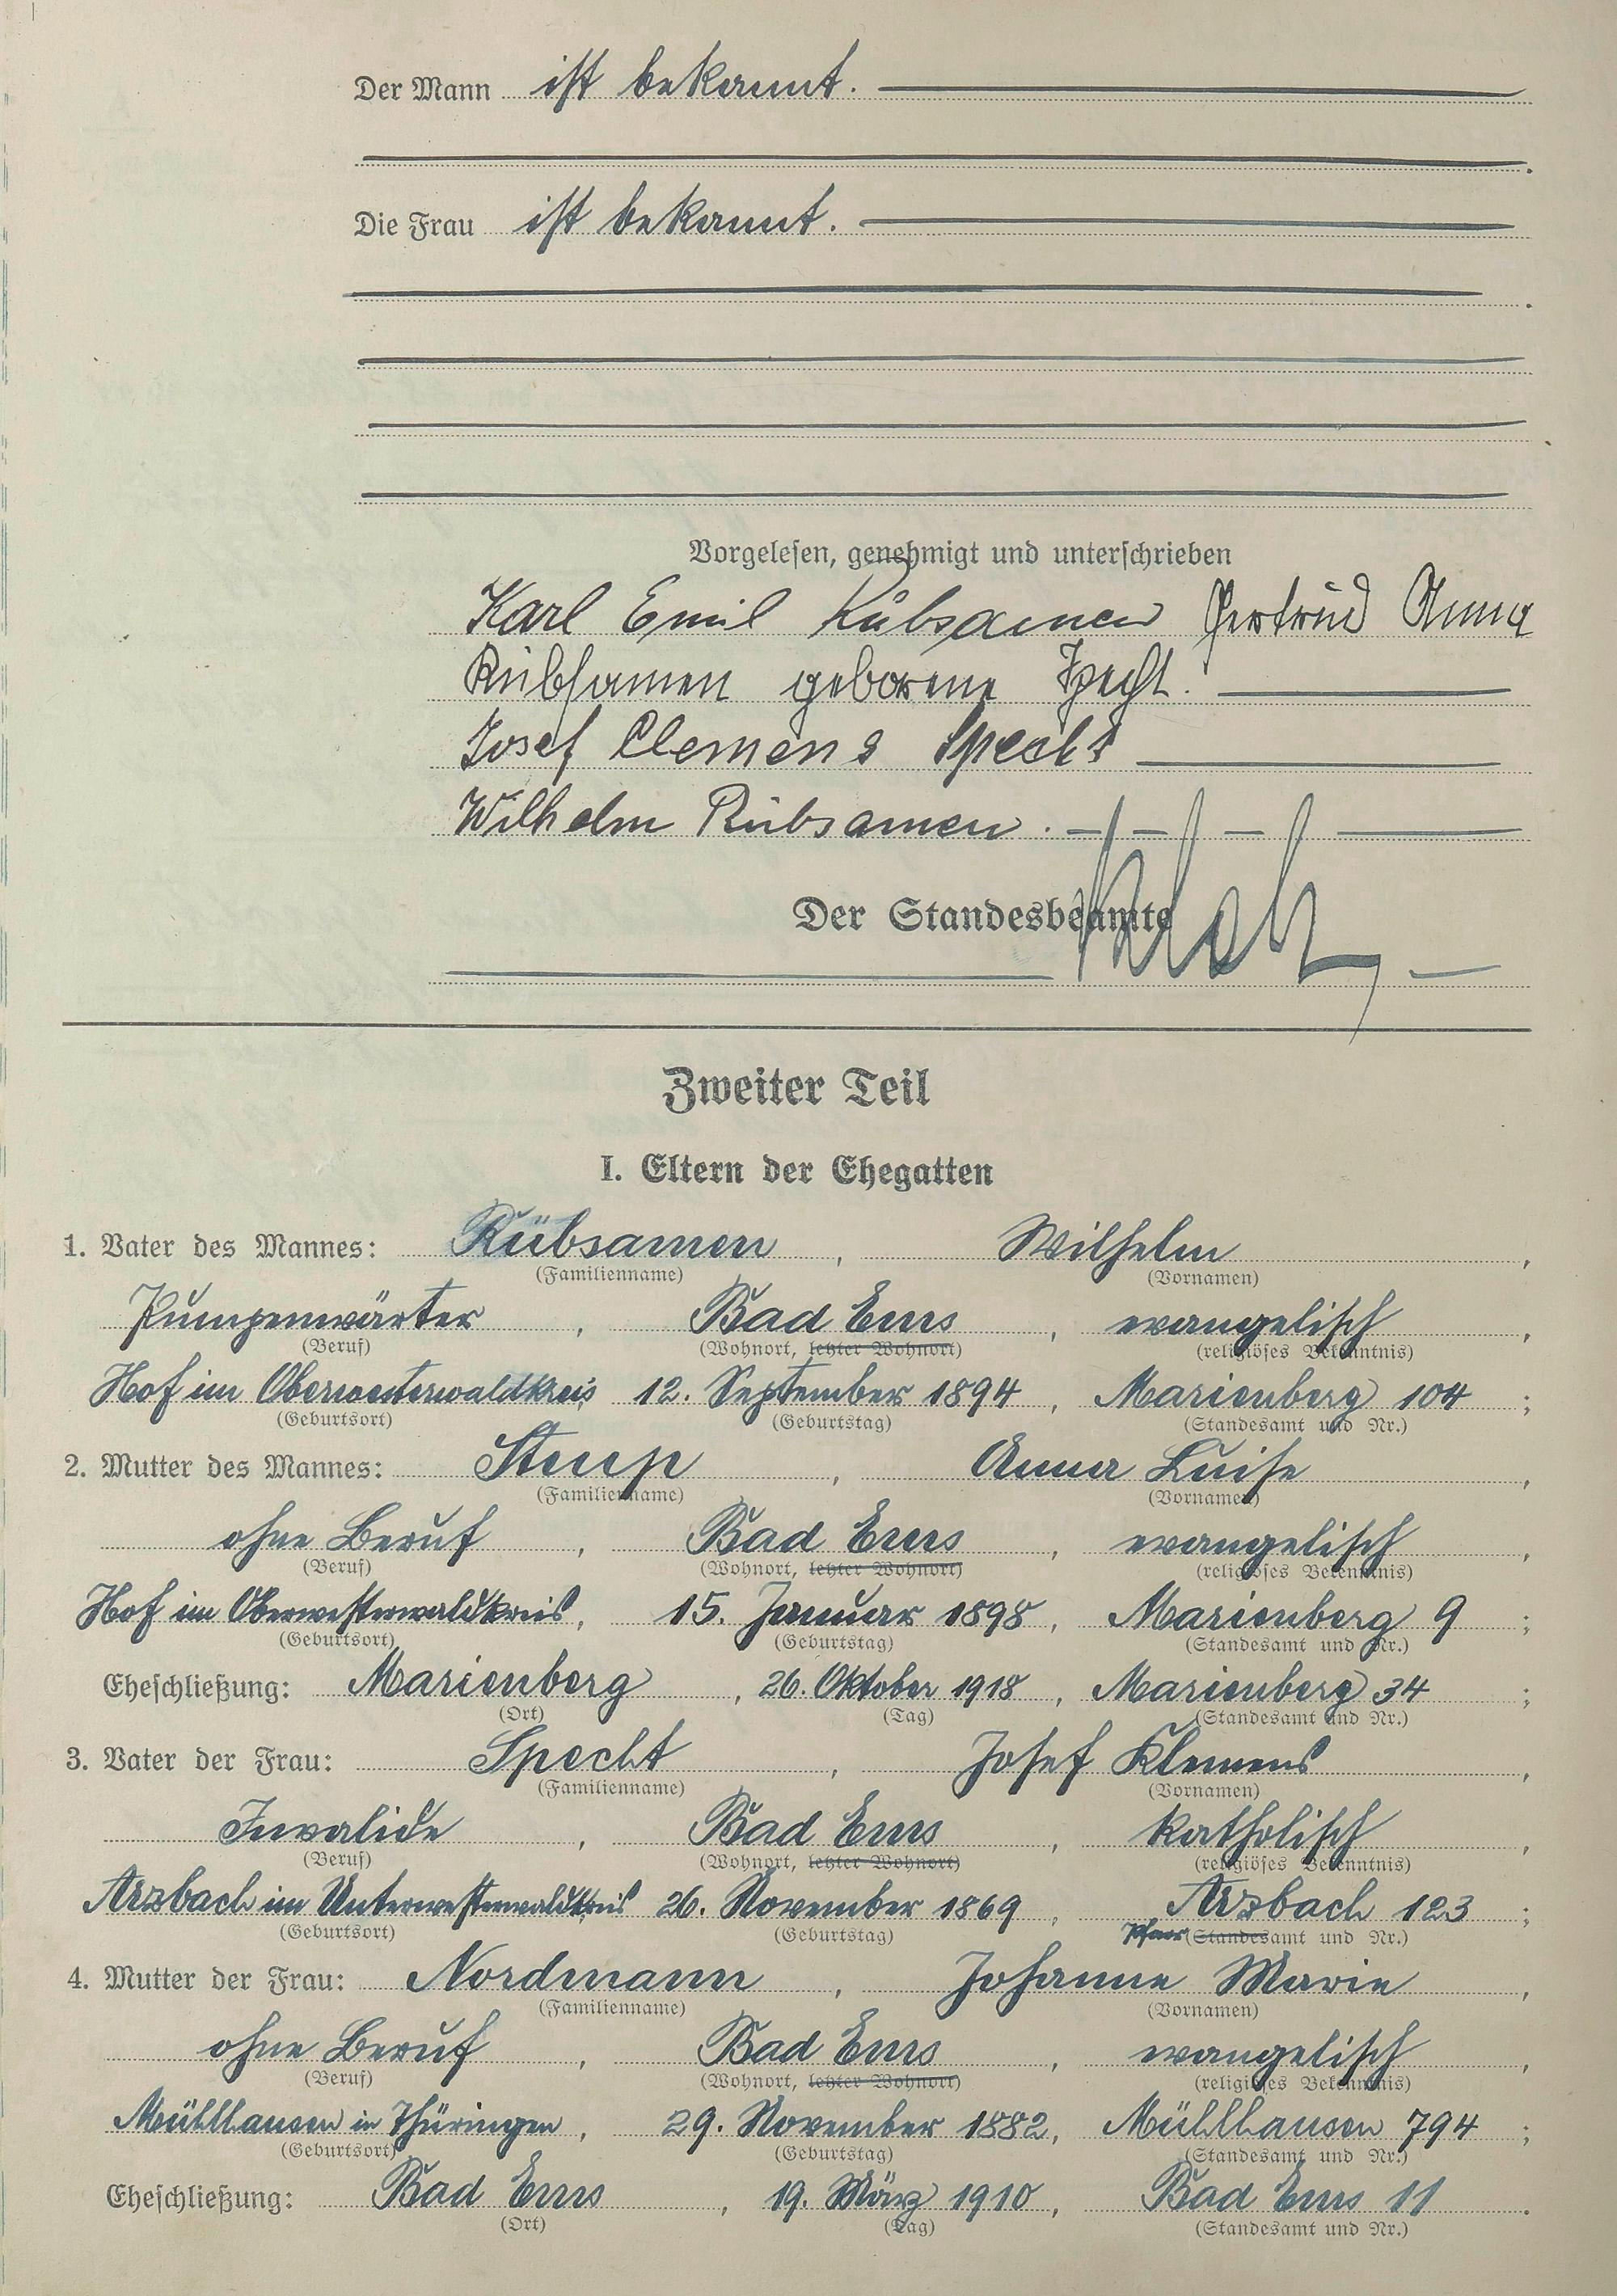 Der Mann ist bekannt.
Die Frau ist bekannt.
Vorgelesen, genehmigt und unterschrieben
Karl Emil Rübsamen Gertrud Anna
Rübsamen geborene Specht.
Josef Clemens Specht
Wilhelm Rübsamen.
Der Standesbeamte
Zweiter Teil
I. Eltern der Ehegatten
1. Vater des Mannes: Rübsamen, Wilhelm,
(Familienname) (Vornamen)
Pumpenwärter, Bad Ems, evangelisch,
(Beruf) (Wohnort, letzter Wohnort) (religiöses Bekenntnis)
Hof im Oberwesterwaldkreis, 12. September 1894, Marienberg 104;
(Geburtsort) (Geburtstag) (Standesamt und Nr.)
2. Mutter des Mannes: Steup, Anna Luise,
(Familienname) (Vornamen)
ohne Beruf, Bad Ems, evangelisch,
(Beruf) (Wohnort, letzter Wohnort) (religiöses Bekenntnis)
Hof im Oberwesterwaldkreis, 15. Januar 1898, Marienberg 9;
(Geburtsort) (Geburtstag) (Standesamt und Nr.)
Eheschließung: Marienberg, 26. Oktober 1918, Marienberg 34;
(Ort) (Tag) (Standesamt und Nr.)
3. Vater der Frau: Specht, Josef Klemens,
(Familienname) (Vornamen)
Invalide, Bad Ems, katholisch,
(Beruf) (Wohnort, letzter Wohnort) (religiöses Bekenntnis)
Arzbach im Unterwesterwaldkreis 26. November 1869, Arzbach 123;
(Geburtsort) (Geburtstag) Pfarr (Standesamt und Nr.)
4. Mutter der Frau: Nordmann, Johanne Marie,
(Familienname) (Vornamen)
ohne Beruf, Bad Ems, evangelisch,
(Beruf) (Wohnort, letzter Wohnort) (religiöses Bekenntnis)
Mühlhausen in Thüringen, 29. November 1882, Mühlhausen 794;
(Geburtsort) (Geburtstag) (Standesamt und Nr.)
Eheschließung: Bad Ems, 19. März 1910, Bad Ems 11.
(Ort) (Tag) (Standesamt und Nr.)